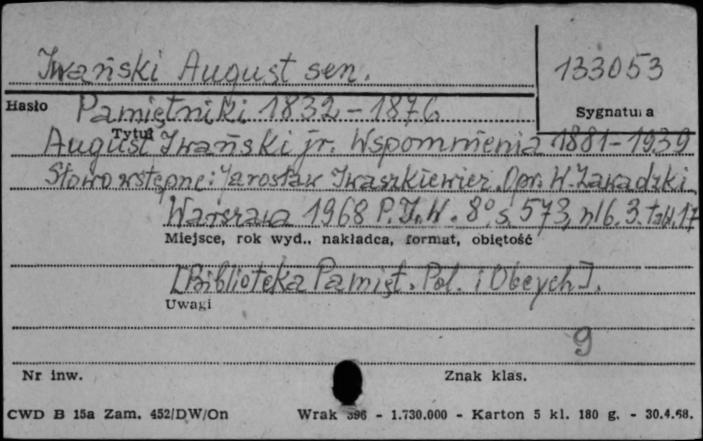 Iwański August sen.
133053
Hasło Pamiętniki 1832-1876
Sygnatura
Tytuł
August Iwański jr. Wspomnienia 1881-1939
Słowo wstępne: Jarosław Iwaszkiewicz. Opr. W. Zawadzki
Warszawa 1968 P.I.W. 8° s. 573, nlb. 3. tabl. 17
Miejsce, rok wyd., nakładca, format, objętość
[Biblioteka Pamięt. Pol. i Obcych].
Uwagi
9
Nr inw. Znak klas.
CWD B 15a Zam. 452/DW/On Wrak 396 - 1.730.000 - Karton 5 kl. 180 g. - 30.4.68.